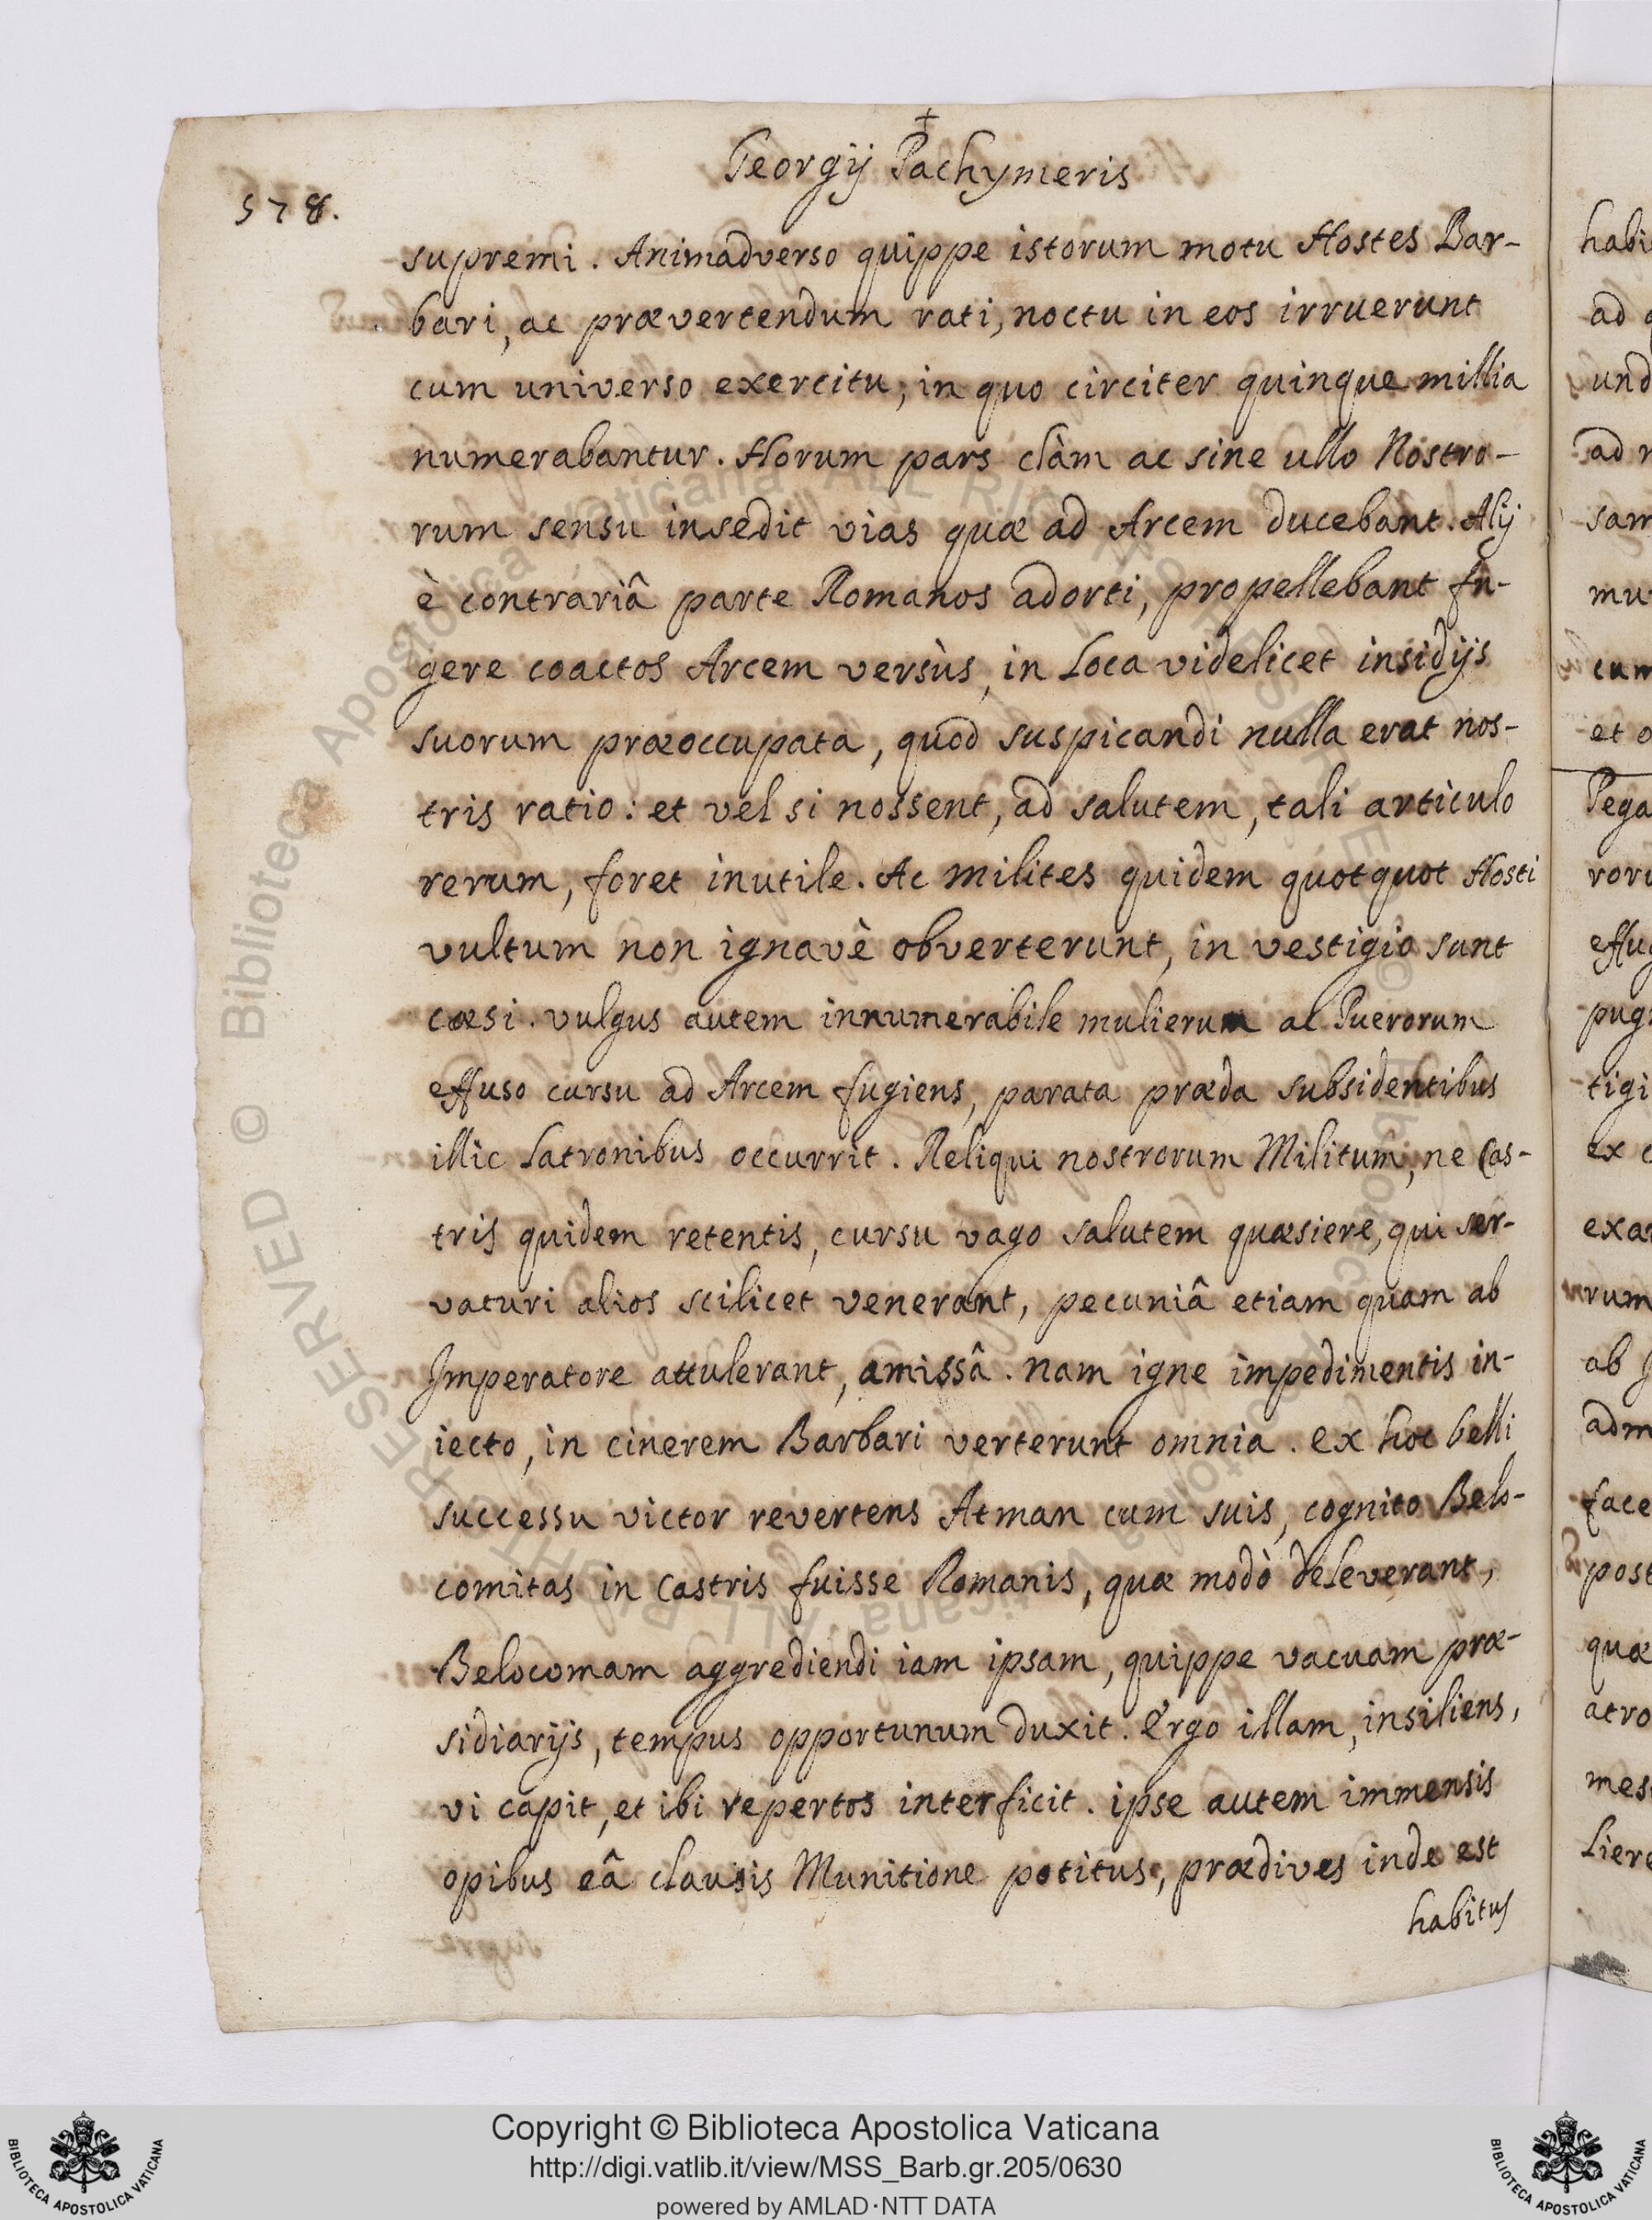 +
Georgij Pachymeris
578.
supremi. Animadverso quippe istorum motu Hostes Bar-
bari, ac prævertendum rati, noctu in eos irruerunt
cum universo exercitu, in quo circiter quinque millia
numerabantur. Horum pars clàm ac sine ullo Nostro-
rum sensu insedit vias quæ ad Arcem ducebant. Alij
è contrariâ parte Romanos adorti, propellebant fu-
gere coactos Arcem versùs, in Loca videlicet insidijs
suorum præoccupata, quod suspicandi nulla erat nos-
tris ratio: et vel si nossent, ad salutem, tali articulo
rerum, foret inutile. Ac milites quidem quotquot Hosti
vultum non ignavè obverterunt, in vestigio sunt
cæsi. vulgus autem innumerabile mulierum ac Puerorum
effuso cursu ad Arcem fugiens, parata præda subsidentibus
illic Latronibus occurrit. Reliqui nostrorum Militum, ne Cas-
tris quidem retentis, cursu vago salutem quæsiere, qui ser-
vaturi alios scilicet venerant, pecuniâ etiam quam ab
Imperatore attulerant, amissâ. Nam igne impedimentis in-
iecto, in cinerem Barbari verterunt omnia. ex hoc belli
successu victor revertens Atman cum suis, cognito Belo-
comitas in Castris fuisse Romanis, quæ modò deleverant,
Belocomam aggrediendi iam ipsam, quippe vacuam præ-
sidiarijs, tempus opportunum duxit. Ergo illam, insiliens,
vi capit, et ibi repertos interficit. ipse autem immensis
opibus eâ clausis Munitione potitus, prædives inde est
habitus
Copyright © Biblioteca Apostolica Vaticana
http://digi.vatlib.it/view/MSS_Barb.gr.205/0630
powered by AMLAD·NTT DATA